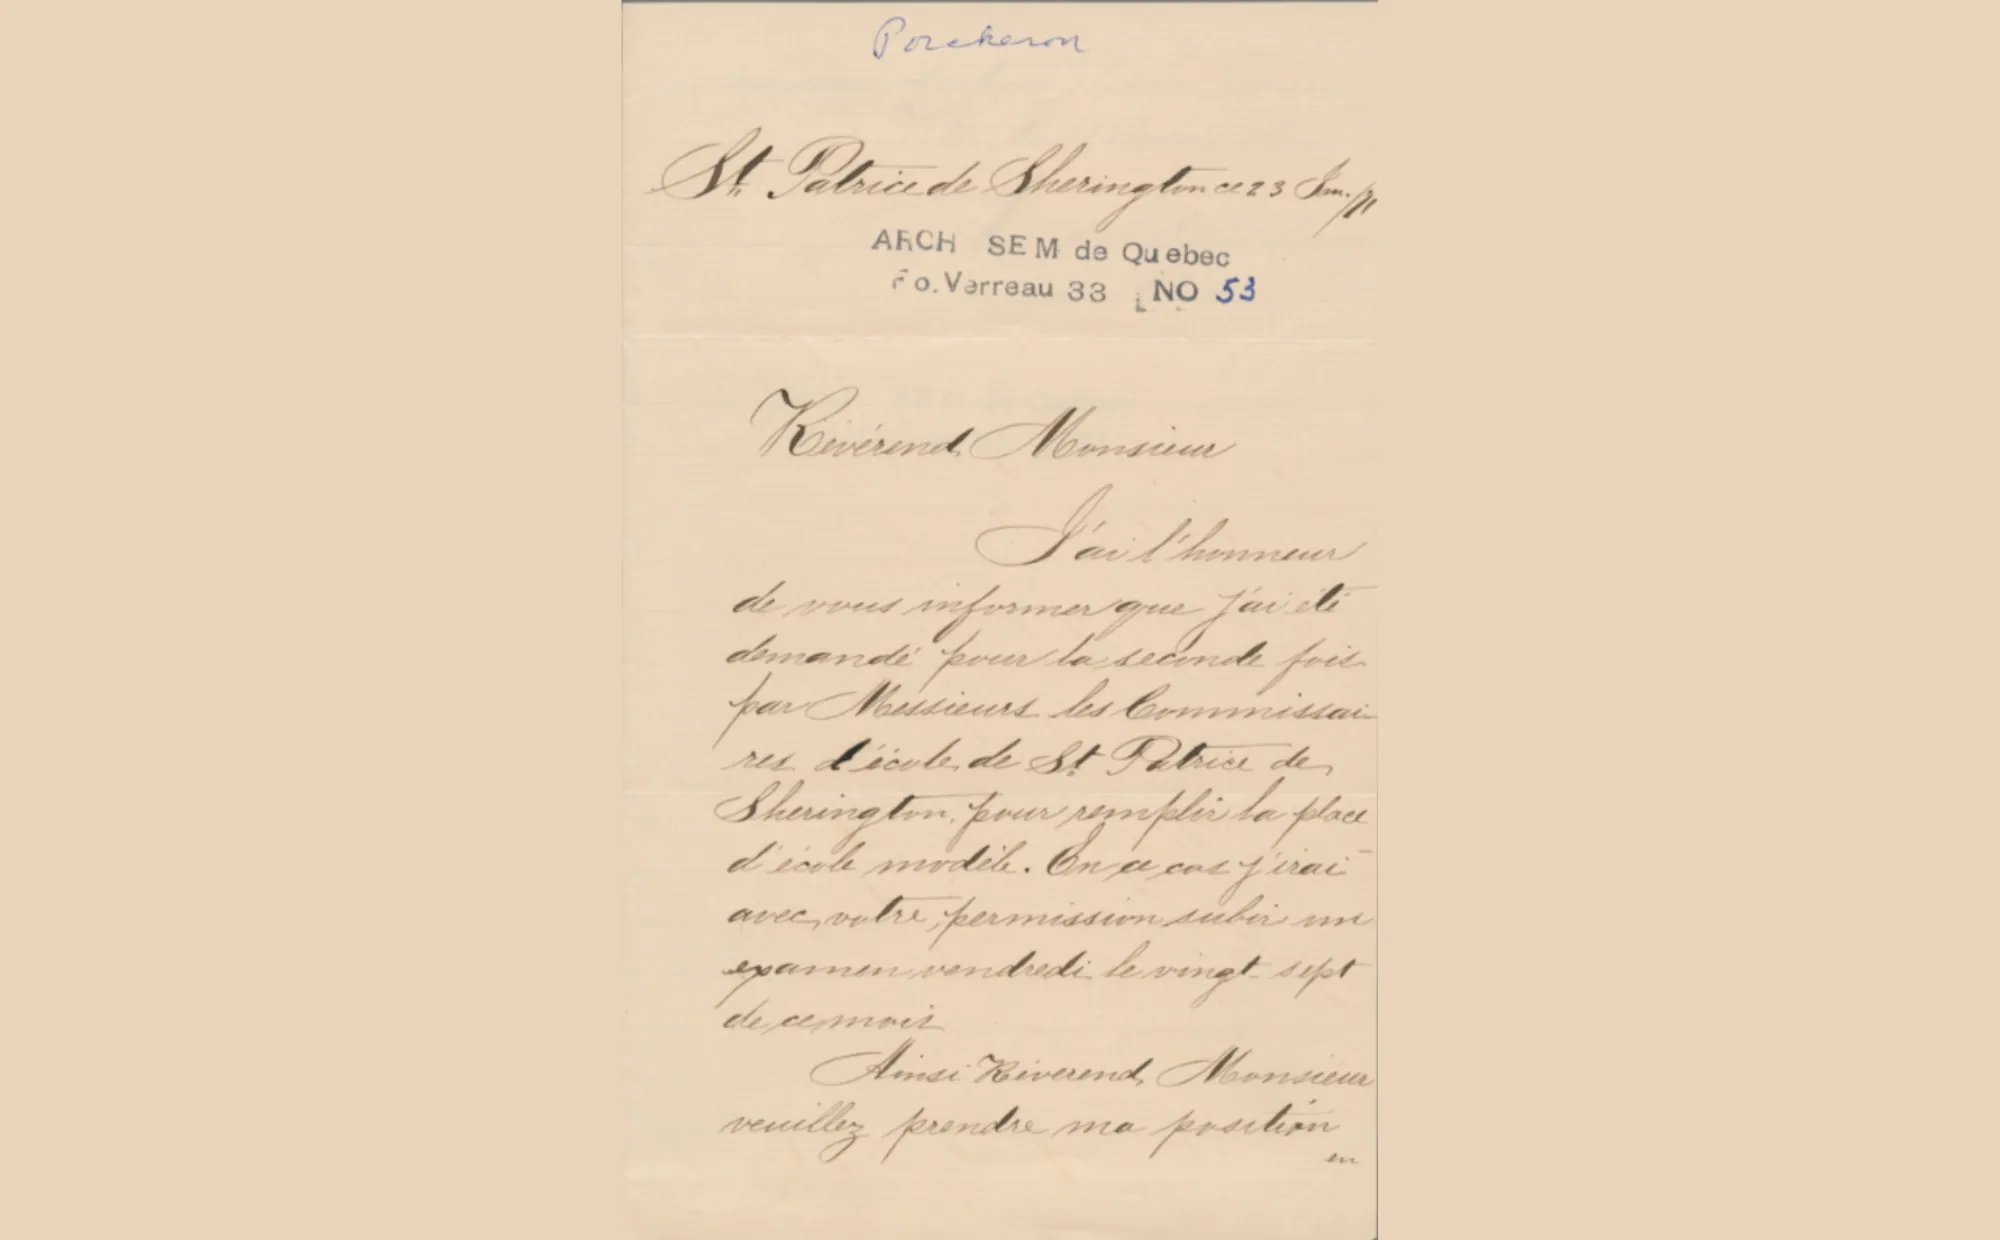 Porcheron
St. Patrice de Sherington ce 23 Jan. /71
ARCH SEM de Quebec
Fo. Verreau 33 NO 53
Révérend Monsieur
J'ai l'honneur
de vous informer que j'ai été
demandé pour la seconde fois
par Messieurs les Commissai-
res d'école de St. Patrice de
Sherington, pour remplir la place
d'école modèle. En ce cas j'irai
avec votre permission subir un
examen vendredi le vingt-sept
de ce mois
Ainsi Réverend Monsieur
veuillez prendre ma position
en